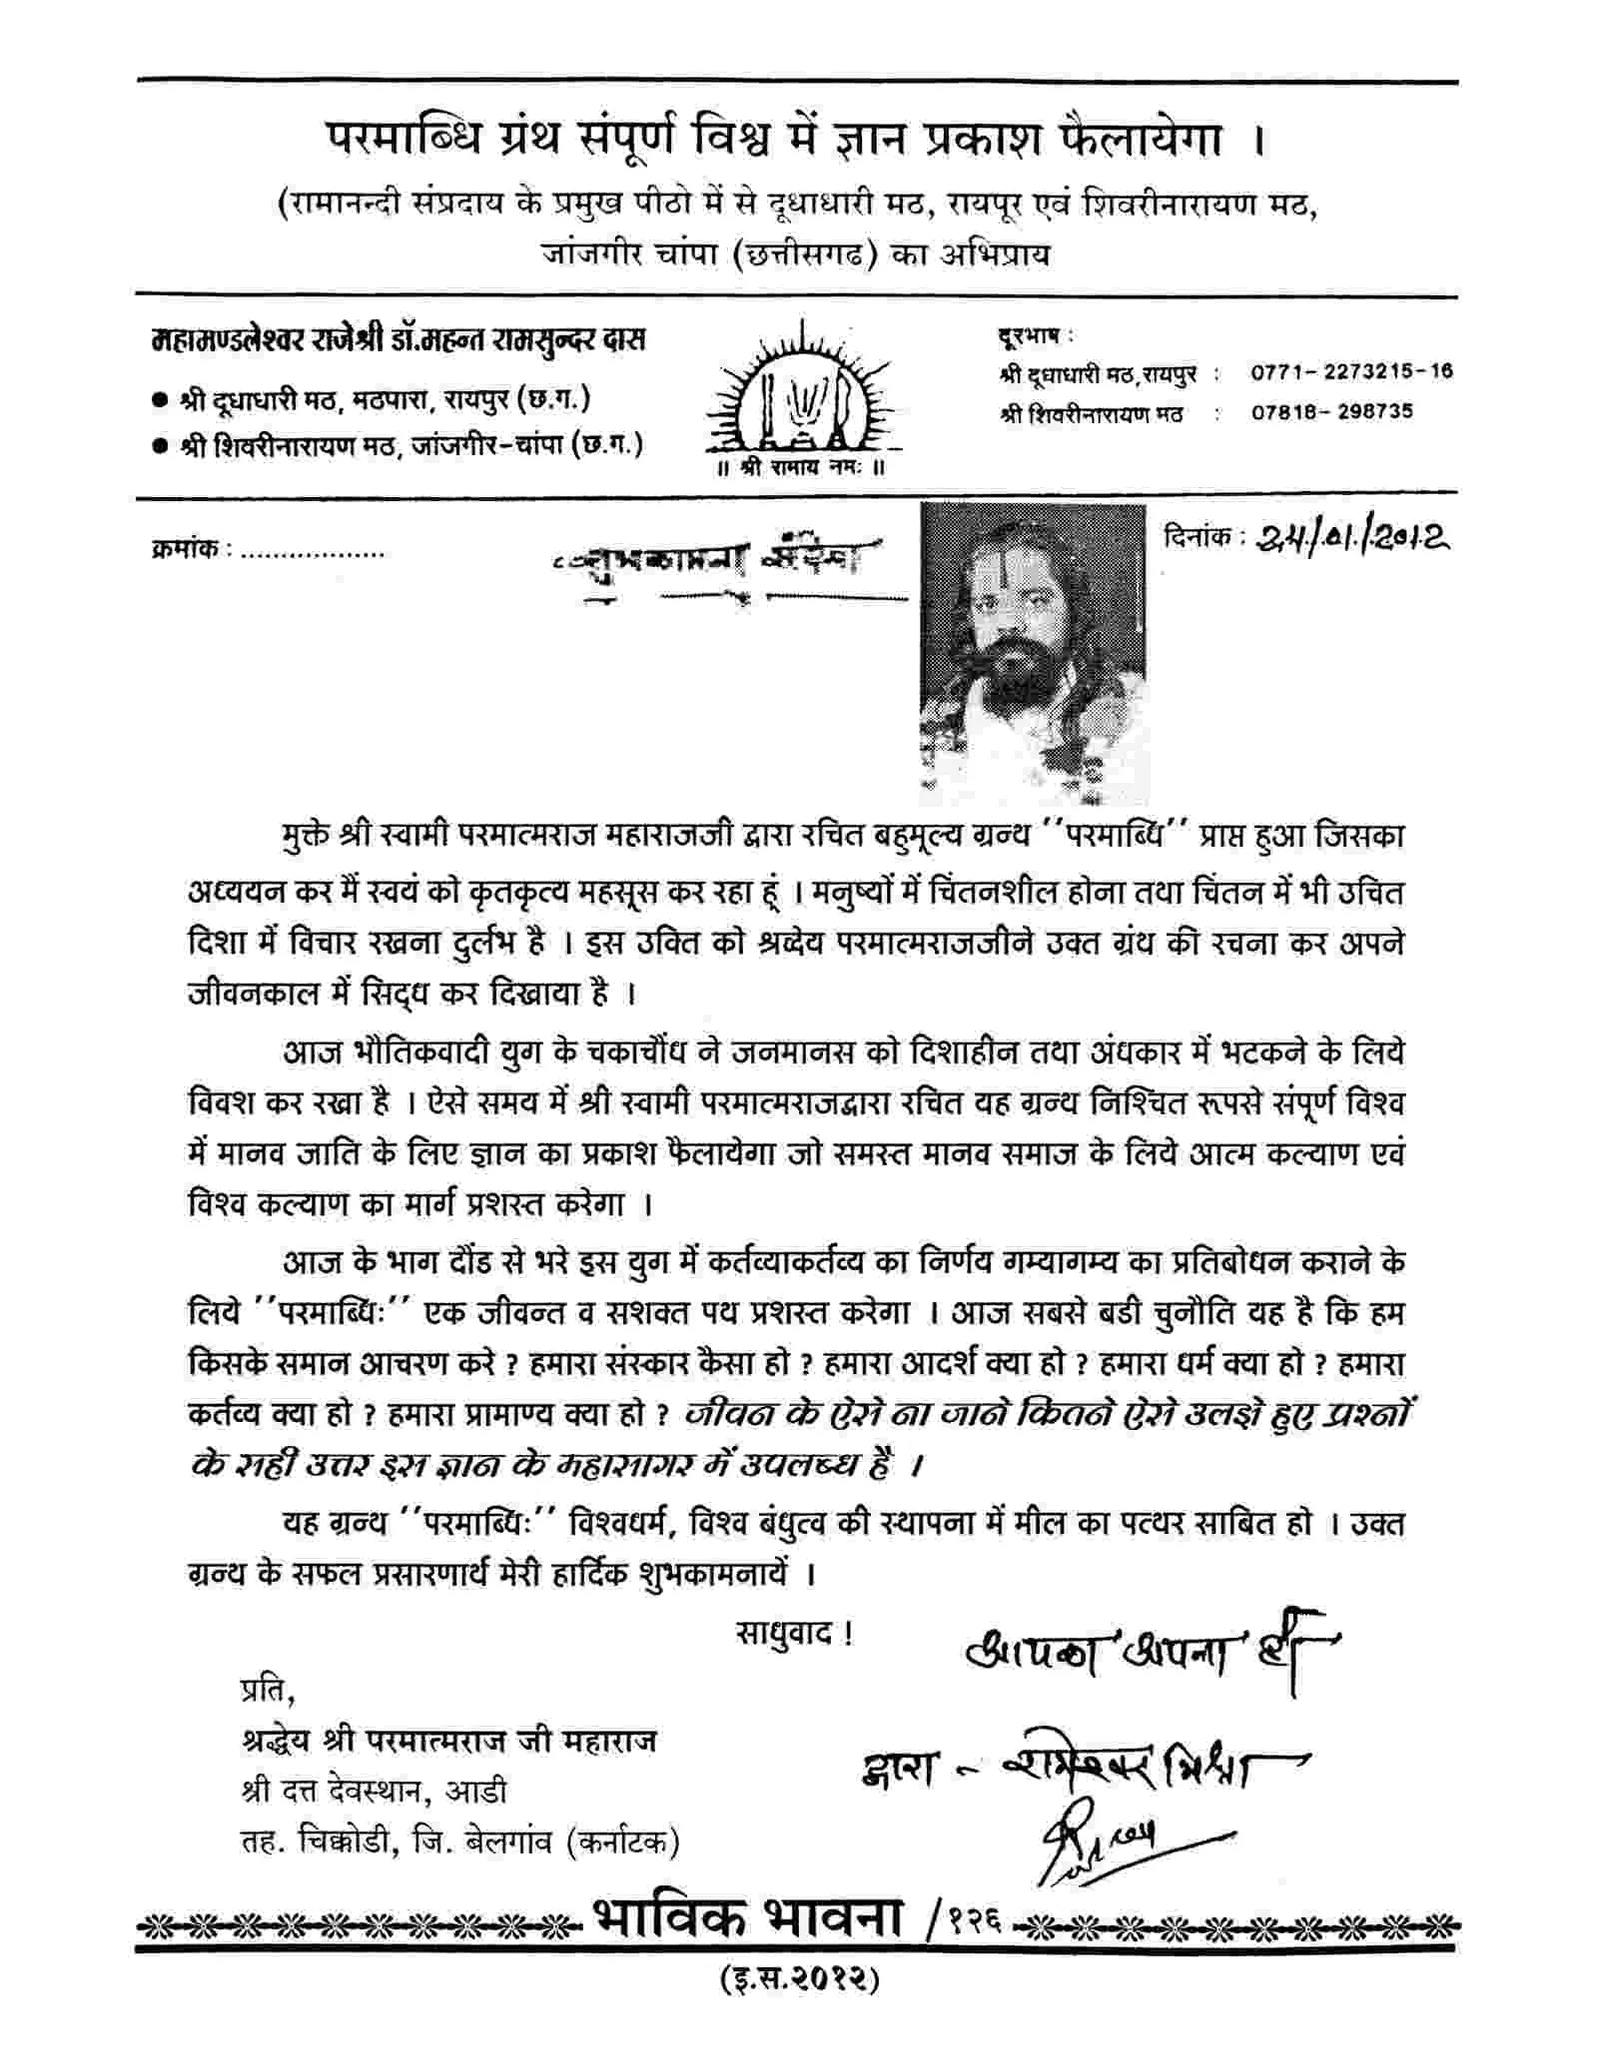 परमाब्धि ग्रंथ संपूर्ण विश्व में ज्ञान प्रकाश फैलायेगा ।
(रामानन्दी संप्रदाय के प्रमुख पीठो में से दूधाधारी मठ, रायपूर एवं शिवरीनारायण मठ,
जांजगीर चांपा (छत्तीसगढ) का अभिप्राय
महामण्डलेश्वर राजेश्री डॉ.महन्त रामसुन्दर दास
● श्री दूधाधारी मठ, मठपारा, रायपुर (छ.ग.)
● श्री शिवरीनारायण मठ, जांजगीर-चांपा (छ.ग.)
॥ श्री रामाय नमः ॥
दूरभाष :
श्री दूधाधारी मठ,रायपुर : 0771-2273215-16
श्री शिवरीनारायण मठ : 07818-298735
क्रमांक : .................
शुभकामना संदेश
दिनांक : 24/01/2012
मुक्ते श्री स्वामी परमात्मराज महाराजजी द्वारा रचित बहुमूल्य ग्रन्थ ''परमाब्धि'' प्राप्त हुआ जिसका
अध्ययन कर मैं स्वयं को कृतकृत्य महसूस कर रहा हूं । मनुष्यों में चिंतनशील होना तथा चिंतन में भी उचित
दिशा में विचार रखना दुर्लभ है । इस उक्ति को श्रध्देय परमात्मराजजीने उक्त ग्रंथ की रचना कर अपने
जीवनकाल में सिद्ध कर दिखाया है ।
आज भौतिकवादी युग के चकाचौंध ने जनमानस को दिशाहीन तथा अंधकार में भटकने के लिये
विवश कर रखा है । ऐसे समय में श्री स्वामी परमात्मराजद्वारा रचित यह ग्रन्थ निश्चित रूपसे संपूर्ण विश्व
में मानव जाति के लिए ज्ञान का प्रकाश फैलायेगा जो समस्त मानव समाज के लिये आत्म कल्याण एवं
विश्व कल्याण का मार्ग प्रशस्त करेगा ।
आज के भाग दौंड से भरे इस युग में कर्तव्याकर्तव्य का निर्णय गम्यागम्य का प्रतिबोधन कराने के
लिये ''परमाब्धिः'' एक जीवन्त व सशक्त पथ प्रशस्त करेगा । आज सबसे बडी चुनौति यह है कि हम
किसके समान आचरण करे ? हमारा संस्कार कैसा हो ? हमारा आदर्श क्या हो ? हमारा धर्म क्या हो ? हमारा
कर्तव्य क्या हो ? हमारा प्रामाण्य क्या हो ? जीवन के ऐसे ना जाने कितने ऐसे उलझे हुए प्रश्नों
के सही उत्तर इस ज्ञान के महासागर में उपलब्ध हैं ।
यह ग्रन्थ ''परमाब्धिः'' विश्वधर्म, विश्व बंधुत्व की स्थापना में मील का पत्थर साबित हो । उक्त
ग्रन्थ के सफल प्रसारणार्थ मेरी हार्दिक शुभकामनायें ।
साधुवाद !
आपका अपना ही
प्रति,
श्रद्धेय श्री परमात्मराज जी महाराज
श्री दत्त देवस्थान, आडी
तह. चिक्कोडी, जि. बेलगांव (कर्नाटक)
द्वारा - रामेश्वर मिश्रा
भाविक भावना /१२६
(इ.स.२०१२)